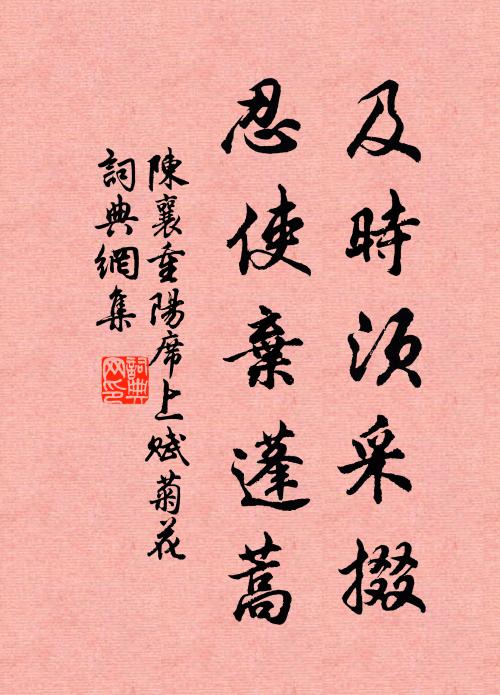 及時須采掇
忍使棄蓬蒿
陳襄重陽席上賦菊花
詞典網集
詞典網印